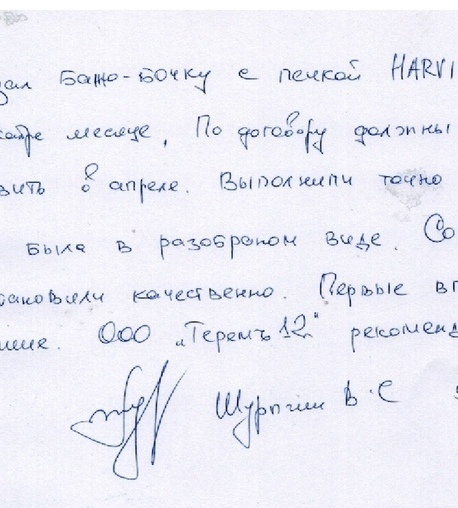 зал Баню-Бочку с печкой HARVI
месяце, По договору должны
вить в апреле. Выполнили точно
была в разобраном виде. Со
тановили качественно. Первые вп
ООО „Теремъ 12" рекоменд
В.С